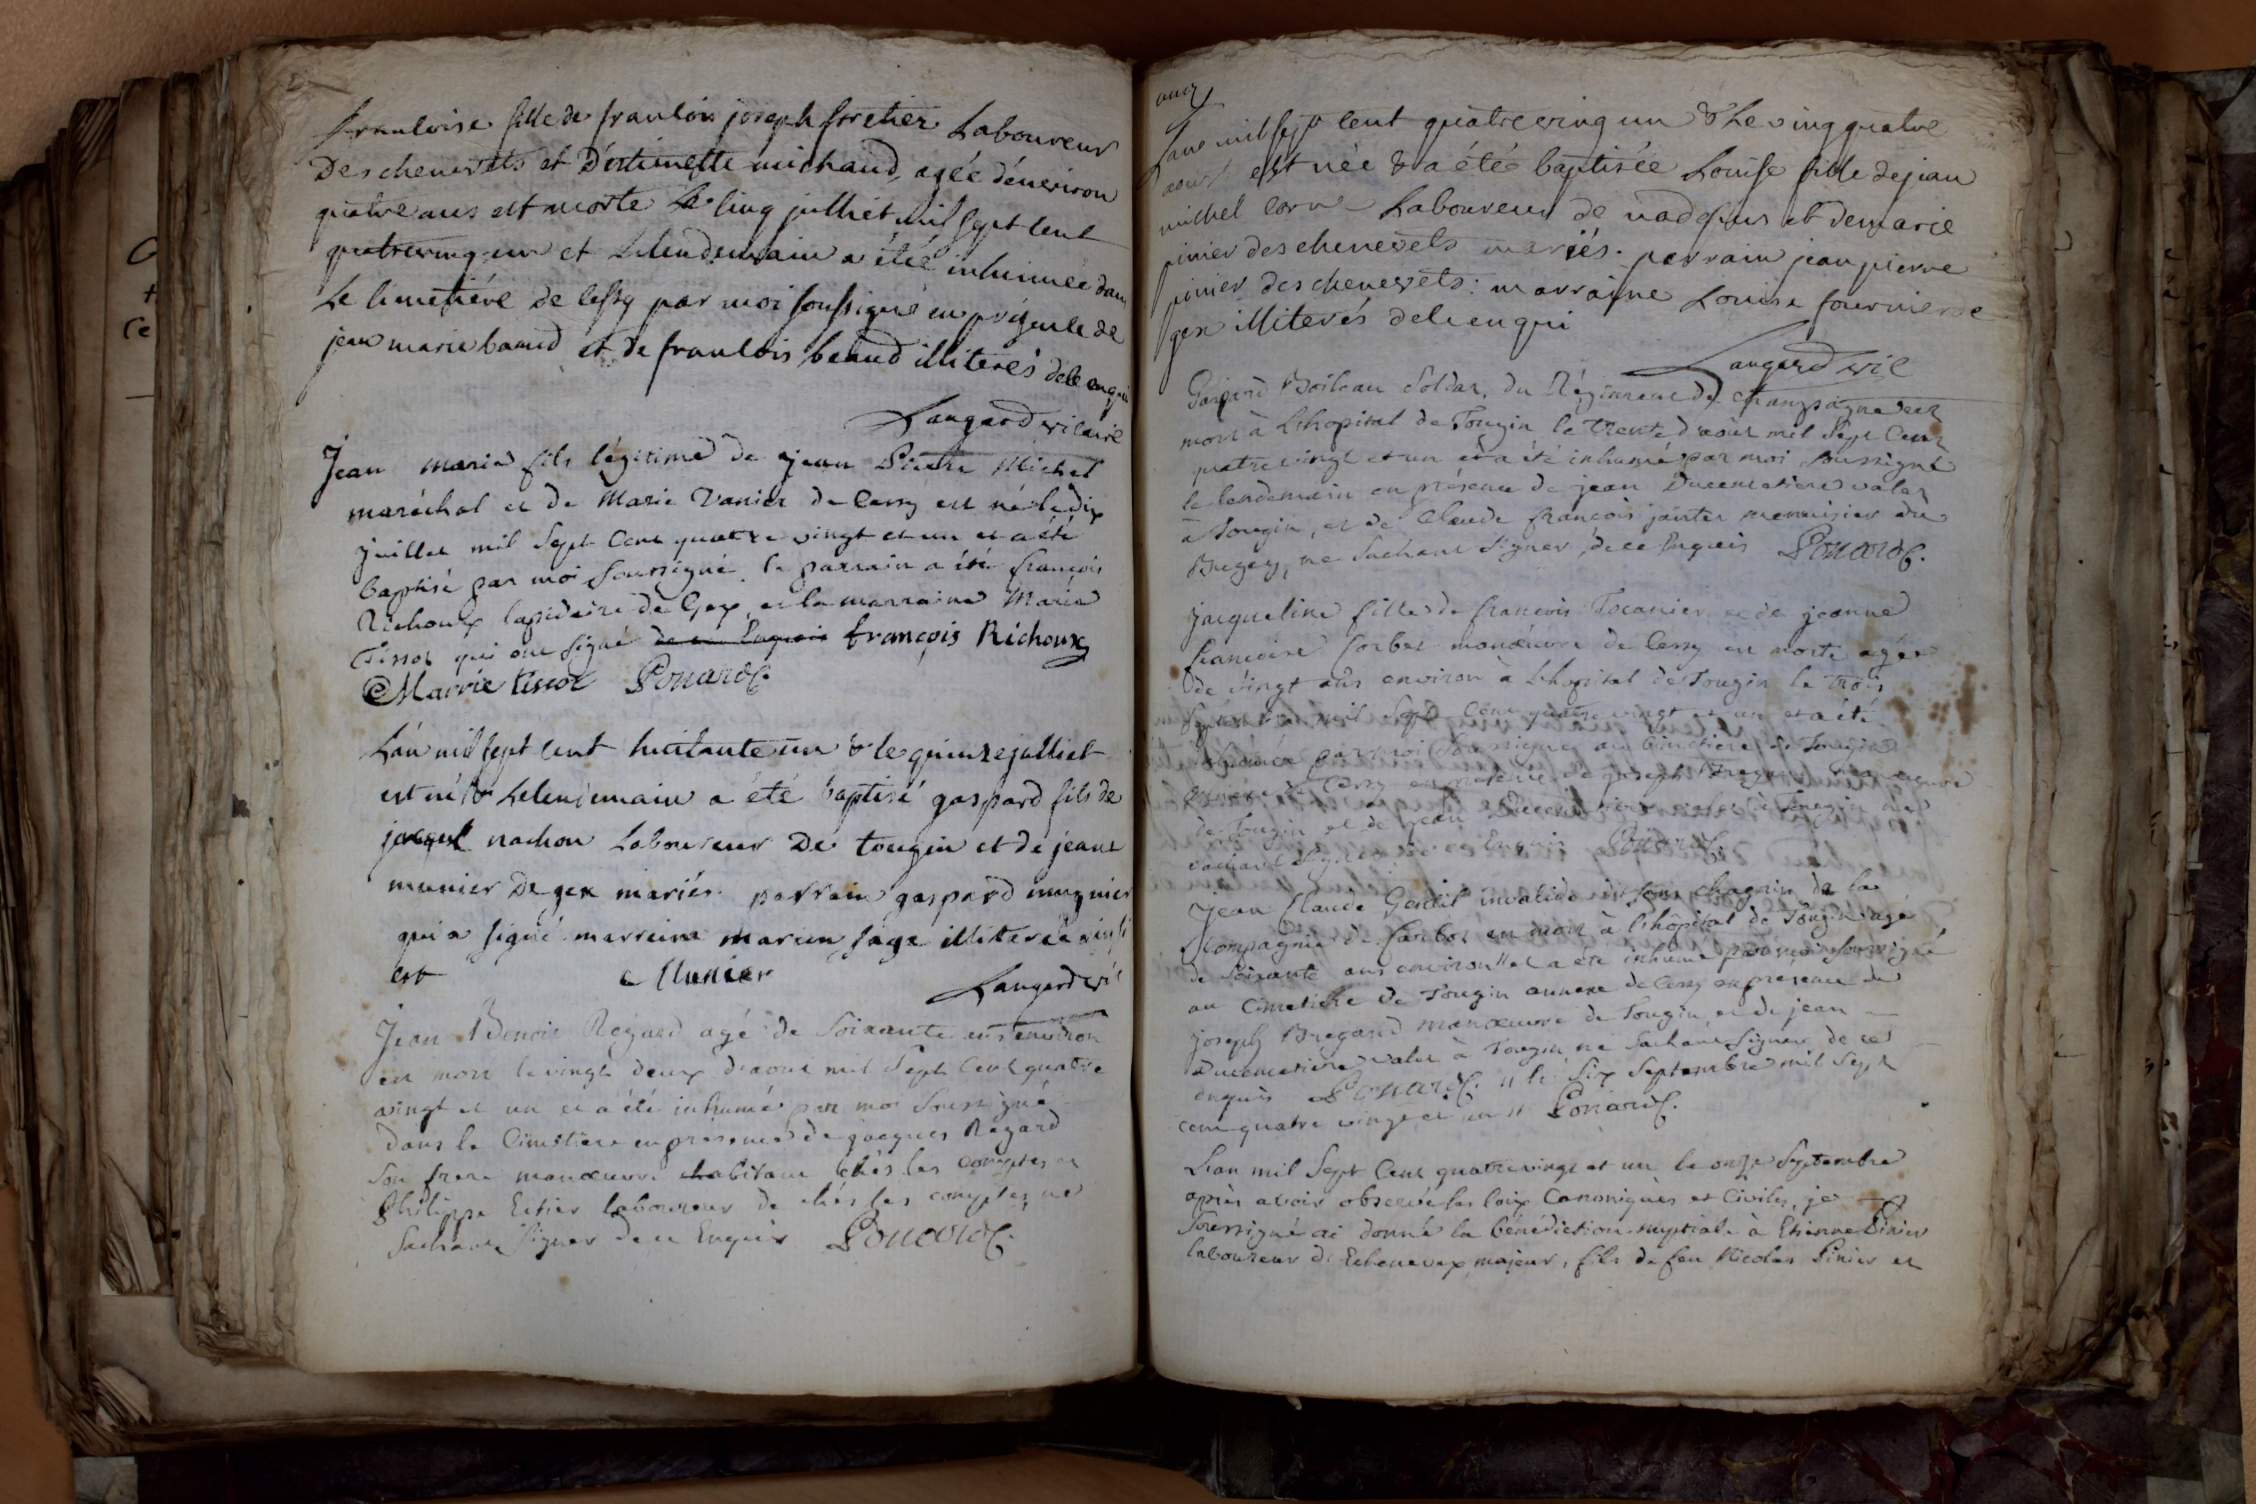 francoise fille de francois joseph foretier Laboureur
Des chenevets et D'estienette michaud, agée d'enviroon
quatre ans est morte Le cinq julliet mil sept cent
quatreving un et Lelendemain a été inhumée dans
Le cimetiére de cessy par moi soussigné en présence de
jean marie baud et de francois beaud illiterés dece enquis
Laugard vicaire
Jean marie fils légitime de jean Pierre Michel
maréchal et de Marie Vanier de Cessy est né le dix
juillet mil sept Cent quatre vingt et un et a été
baptisé par moi soussigné. le parrain a été françois
Richoux lapidaire de Gex, et la marraine Marie
Tissot qui ont signé de ce Enquis françois Richoux
Marie tissot Ponard C.
L'an mil sept cent huitante un & le quinze julliet
est né & Lelendemain a été baptisé gaspard fils de
nachon Laboureur De tougin et de jeane
munier De gex mariés. parrain gaspard mugnier
qui a signé marreine marien sage illiterée
est Munier
Laugard vi
Jean Benoit Regard agé de soixante ans environ
est mort le vingt deux d'aout mil sept Cent quatre
vingt et un et a été inhumé par moi soussigné
dans le Cimetiere en présence de jacques Regard
son frere manœuvre habitant chés les comptes et
Philippe laboureur de chés les comptes, ne
sachant signer de ce Enquis Ponard C.
L'ane mil sept cent quatreving un & Le ving quatre
aout est née & a été baptisée Louise fille de jean
michel Laboureur de et de marie
pinier des chenevets mariés. parrain jean pierre
pinier des chenevets: marraine Louise fournier de
gex illiterés de ce enqui
Laugard vic
Gaspard Boileau soldat, du Régiment de Champagne est
mort à L'hopital de Tougin le trente d'aout mil sept Cent
quatre vingt et un et a été inhumé par moi soussigné
le lendemain en présence de jean Ducemetiere valet
à Tougin, et de Claude françois janter menuisier du
Bugey, ne sachant signer, de ce Enquis Ponard C.
jacqueline fille de françois Tocanier et de jeanne
françoise Corbet manœuvre de Cessy est morte agée
de vingt ans environ à L'hopital de Tougin le trois
septembre mil sept Cent quatre vingt et un et a été
inhumée par moi soussigné au Cimetiere de Tougin
annexe de Cessy en présence de joseph Bregand manœuvre
de Tougin et de jean Ducemetiere valet à Tougin ne
sachant signer de ce Enquis Ponard C.
Jean Claude Gentil invalide dit sans chagrin de la
Compagnie de est mort à L'hôpital de Tougin agé
de soixante ans environ // et a été inhumé par moi soussigné
au Cimetiere de Tougin annexe de Cessy en presence de
joseph Bregand manœuvre de Tougin, et de jean
Ducemetiere valet à Tougin, ne sachant signer de ce
enquis Ponard C. // le six septembre mil sept
cent quatre vingt et un // Ponard C.
L'an mil sept Cent quatrevingt et un le onze septembre
après avoir observé les loix Canoniques et Civiles, je
soussigné ai donné la bénédiction nuptiale à Etienne Pinier
laboureur d'Echenevex majeur, fils de feu Nicolas Pinier et